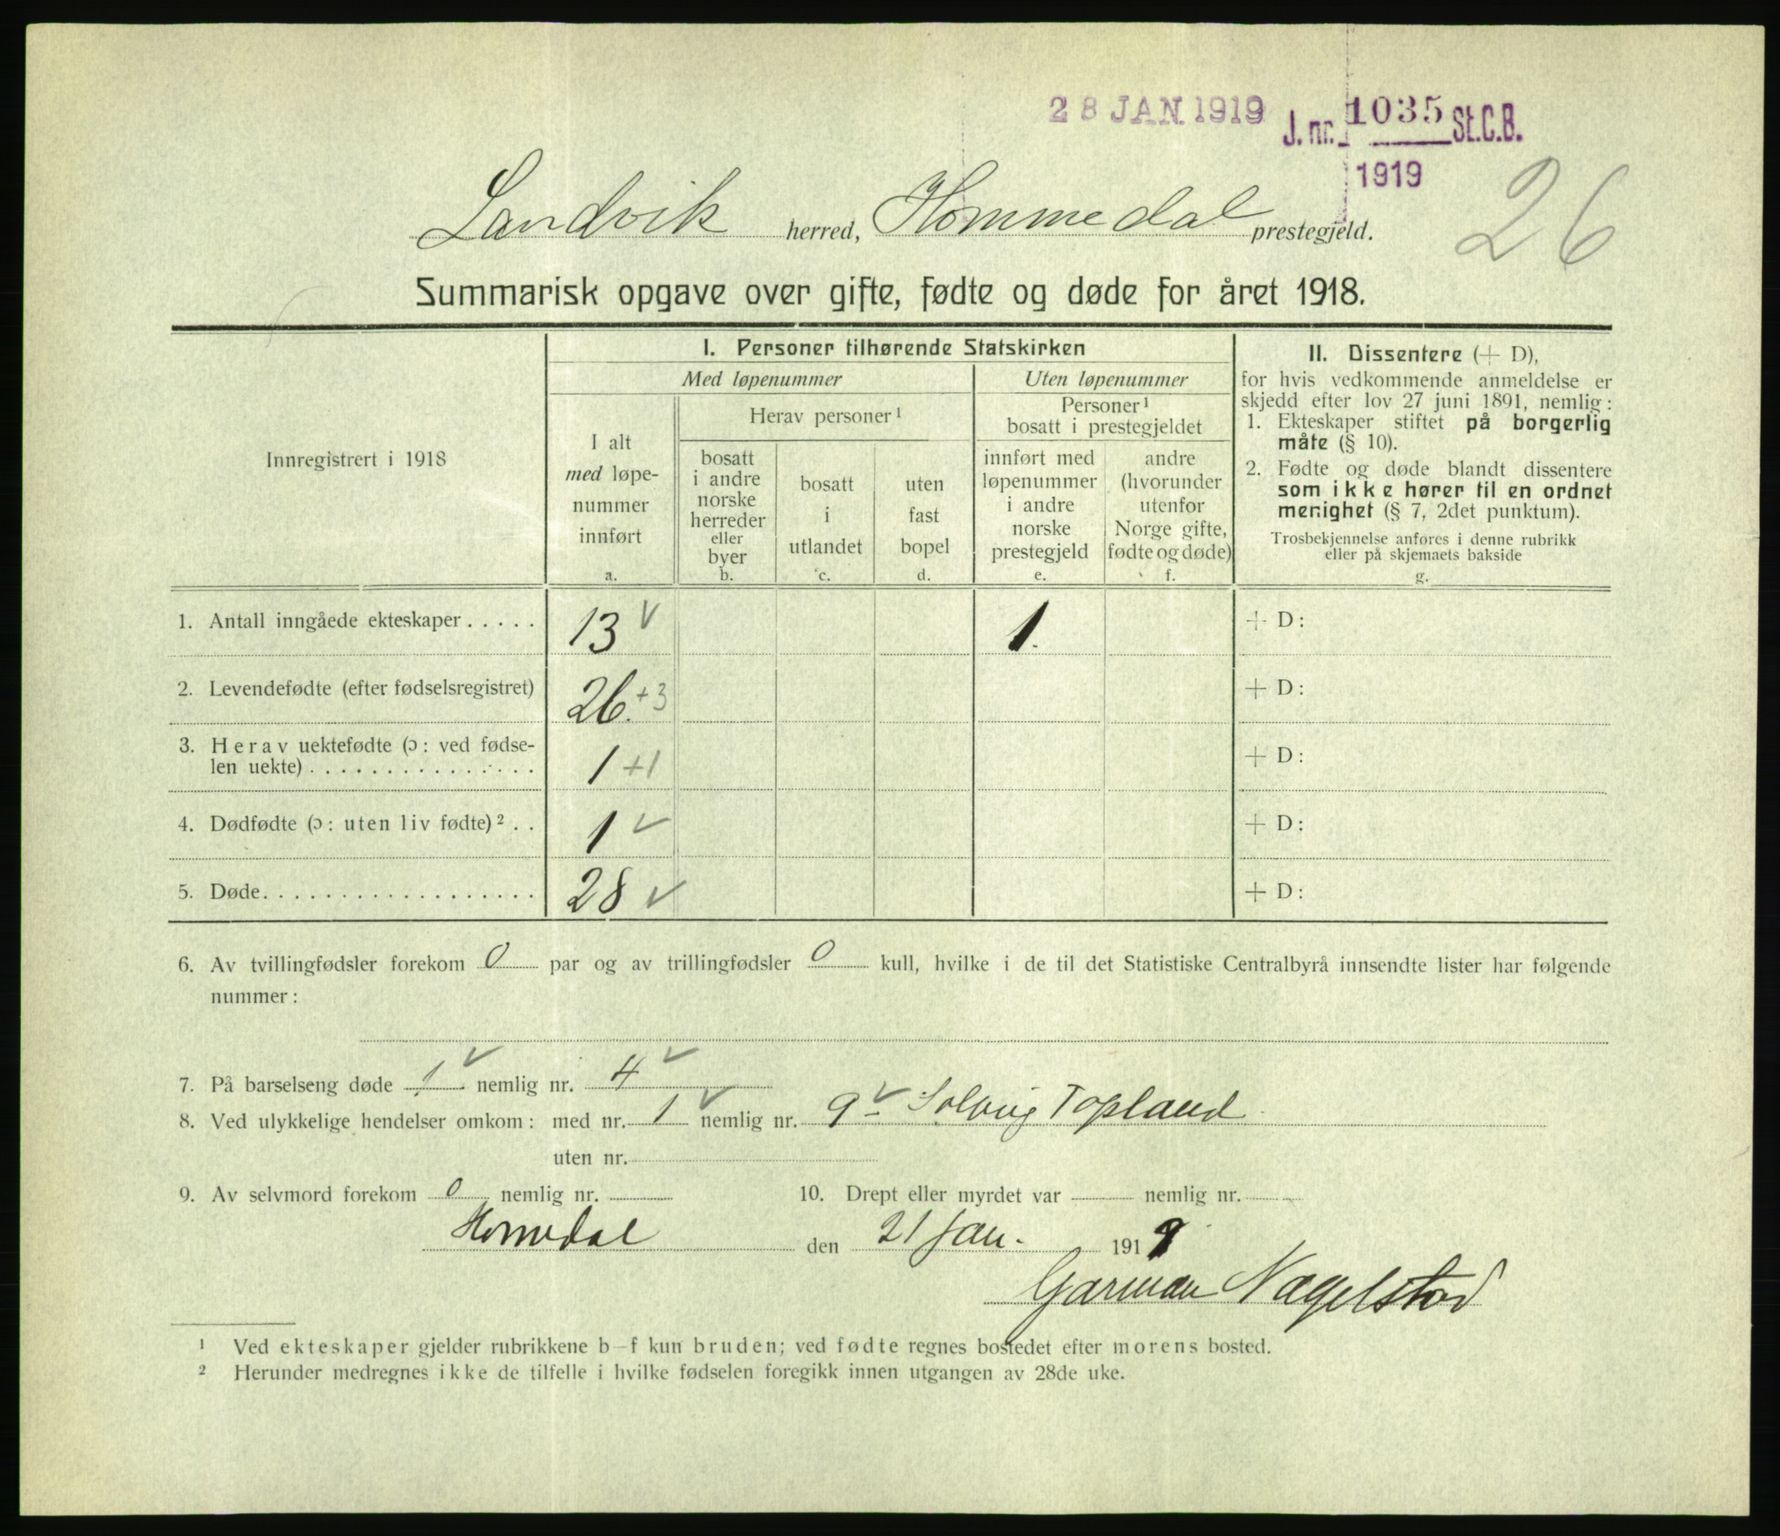 28 JAN. 1919 J. nr. 1035 St.C.B.
1919
26
Landvik herred, Hommedal prestegjeld.
Summarisk opgave over gifte, fødte og døde for året 1918.
Innregistrert i 1918
I. Personer tilhørende Statskirken
Med løpenummer
Uten løpenummer
I alt
med løpe-
nummer
innført
a.
Herav personer ¹
bosatt
i andre
norske
herreder
eller
byer
b.
bosatt
i
utlandet
c.
uten
fast
bopel
d.
Personer ¹
bosatt i prestegjeldet
innført med
løpenummer
i andre
norske
prestegjeld
e.
andre
(hvorunder
utenfor
Norge gifte,
fødte og døde)
f.
II. Dissentere (+ D),
for hvis vedkommende anmeldelse er
skjedd efter lov 27 juni 1891, nemlig:
1. Ekteskaper stiftet på borgerlig
måte (§ 10).
2. Fødte og døde blandt dissentere
som ikke hører til en ordnet
menighet (§ 7, 2det punktum).
Trosbekjennelse anføres i denne rubrikk
eller på skjemaets bakside
g.
1. Antall inngåede ekteskaper . . . . . 13 ✓ 1. + D:
2. Levendefødte (efter fødselsregistret) 26. +3 + D:
3. Herav uektefødte (ɔ: ved fødse-
len uekte) . . . . . . . . . . . . . . . 1 +1 + D:
4. Dødfødte (ɔ: uten liv fødte) ² . . 1 ✓ + D:
5. Døde. . . . . . . . . . . . . . . . . . 28 ✓ + D:
6. Av tvillingfødsler forekom 0 par og av trillingfødsler 0 kull, hvilke i de til det Statistiske Centralbyrå innsendte lister har følgende
nummer:
7. På barselseng døde 1 ✓ nemlig nr. 4 ✓
8. Ved ulykkelige hendelser omkom: med nr. 1 ✓ nemlig nr. 9 ✓ Solveig Topland
uten nr.
9. Av selvmord forekom 0 nemlig nr. 10. Drept eller myrdet var nemlig nr.
Homedal den 21 jan. 1919
Garman Nagelstad
¹ Ved ekteskaper gjelder rubrikkene b–f kun bruden; ved fødte regnes bostedet efter morens bosted.
² Herunder medregnes ikke de tilfelle i hvilke fødselen foregikk innen utgangen av 28de uke.